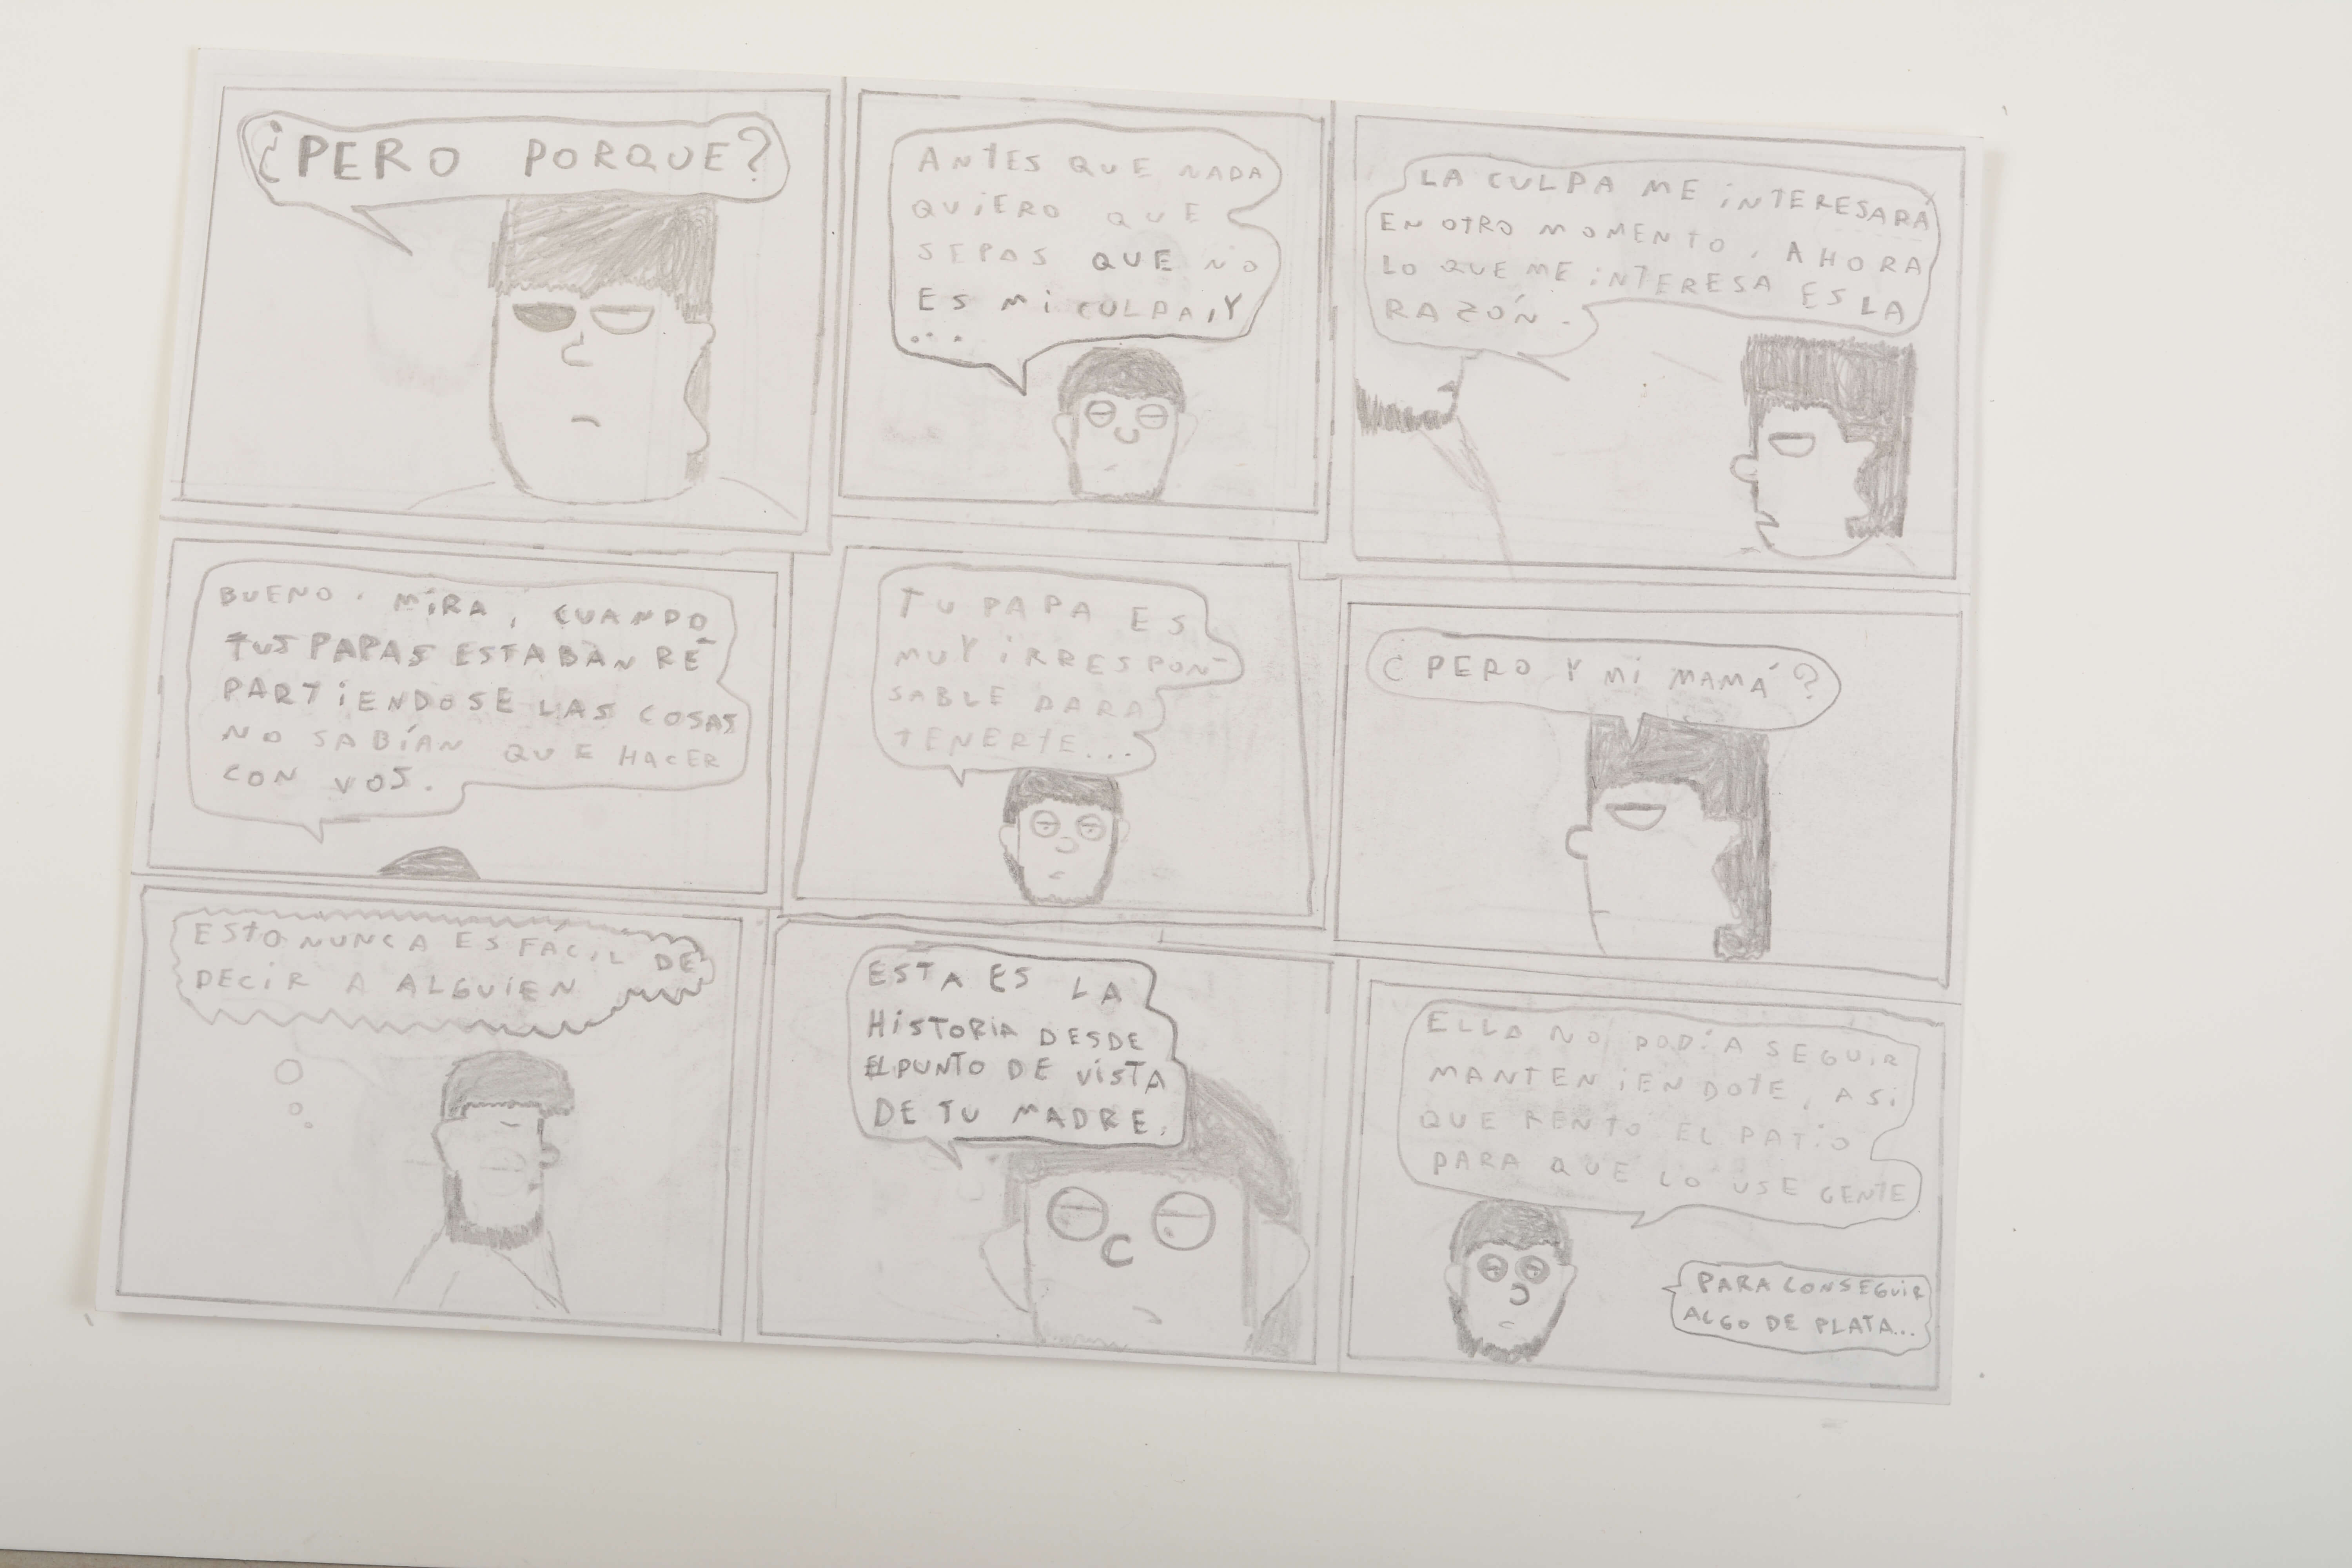 ¿PERO PORQUE?
ANTES QUE NADA
QUIERO QUE
SEPAS QUE NO
ES MI CULPA, Y
...
LA CULPA ME INTERESARÁ
EN OTRO MOMENTO, AHORA
LO QUE ME INTERESA ES LA
RAZÓN.
BUENO. MIRA, CUANDO
TUS PAPAS ESTABAN RE-
PARTIENDOSE LAS COSAS
NO SABÍAN QUE HACER
CON VOS.
TU PAPA ES
MUY IRRESPON-
SABLE PARA
TENERTE...
¿PERO Y MI MAMÁ?
ESTO NUNCA ES FÁCIL DE
DECIR A ALGUIEN
ESTA ES LA
HISTORIA DESDE
EL PUNTO DE VISTA
DE TU MADRE.
ELLA NO PODÍA SEGUIR
MANTENIENDOTE, ASI
QUE RENTO EL PATIO
PARA QUE LO USE GENTE
PARA CONSEGUIR
ALGO DE PLATA...